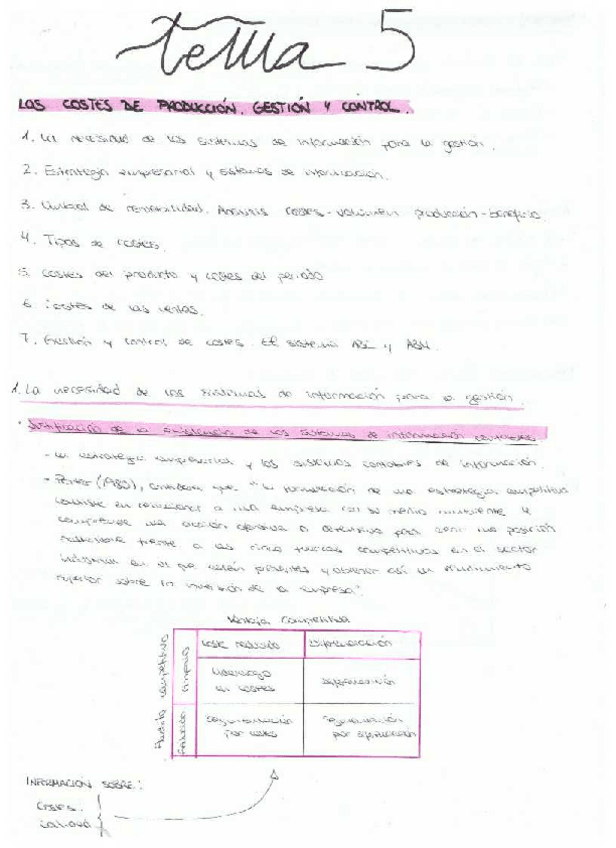 tema 5
LOS COSTES DE PRODUCCIÓN. GESTIÓN Y CONTROL.
1. La necesidad de los sistemas de información para la gestión.
2. Estrategia empresarial y sistemas de información.
3. Umbral de rentabilidad. Análisis costes-volumen producción-beneficio
4. Tipos de costes.
5. Costes del producto y costes del periodo
6. Costes de las ventas.
7. Gestión y control de costes. El sistema ABC y ABM.
1. La necesidad de los sistemas de información para la gestión.
· Justificación de la existencia de los sistemas de información contables
- La estrategia empresarial y los sistemas contables de información.
- Porter (1980), considera que "la formulación de una estrategia competitiva
consiste en relacionar a una empresa con su medio ambiente y
comprende una acción ofensiva o defensiva para crear una posición
frente a las cinco fuerzas competitivas en el sector
industrial en el que están presentes y obtener así un rendimiento
superior sobre la inversión de la empresa."
Ventaja Competitiva
Coste reducido Diferenciación
Ámbito competitivo
Amplio
Liderazgo Diferenciación
en costes
Reducido
Segmentación Segmentación
por costes por diferenciación
INFORMACIÓN SOBRE:
Costes.
Calidad